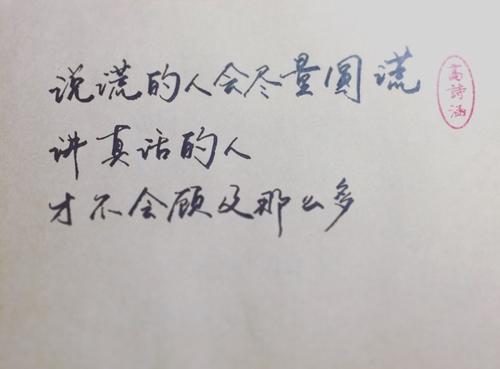 说谎的人会尽量圆谎
讲真话的人
才不会顾及那么多
高詩涵